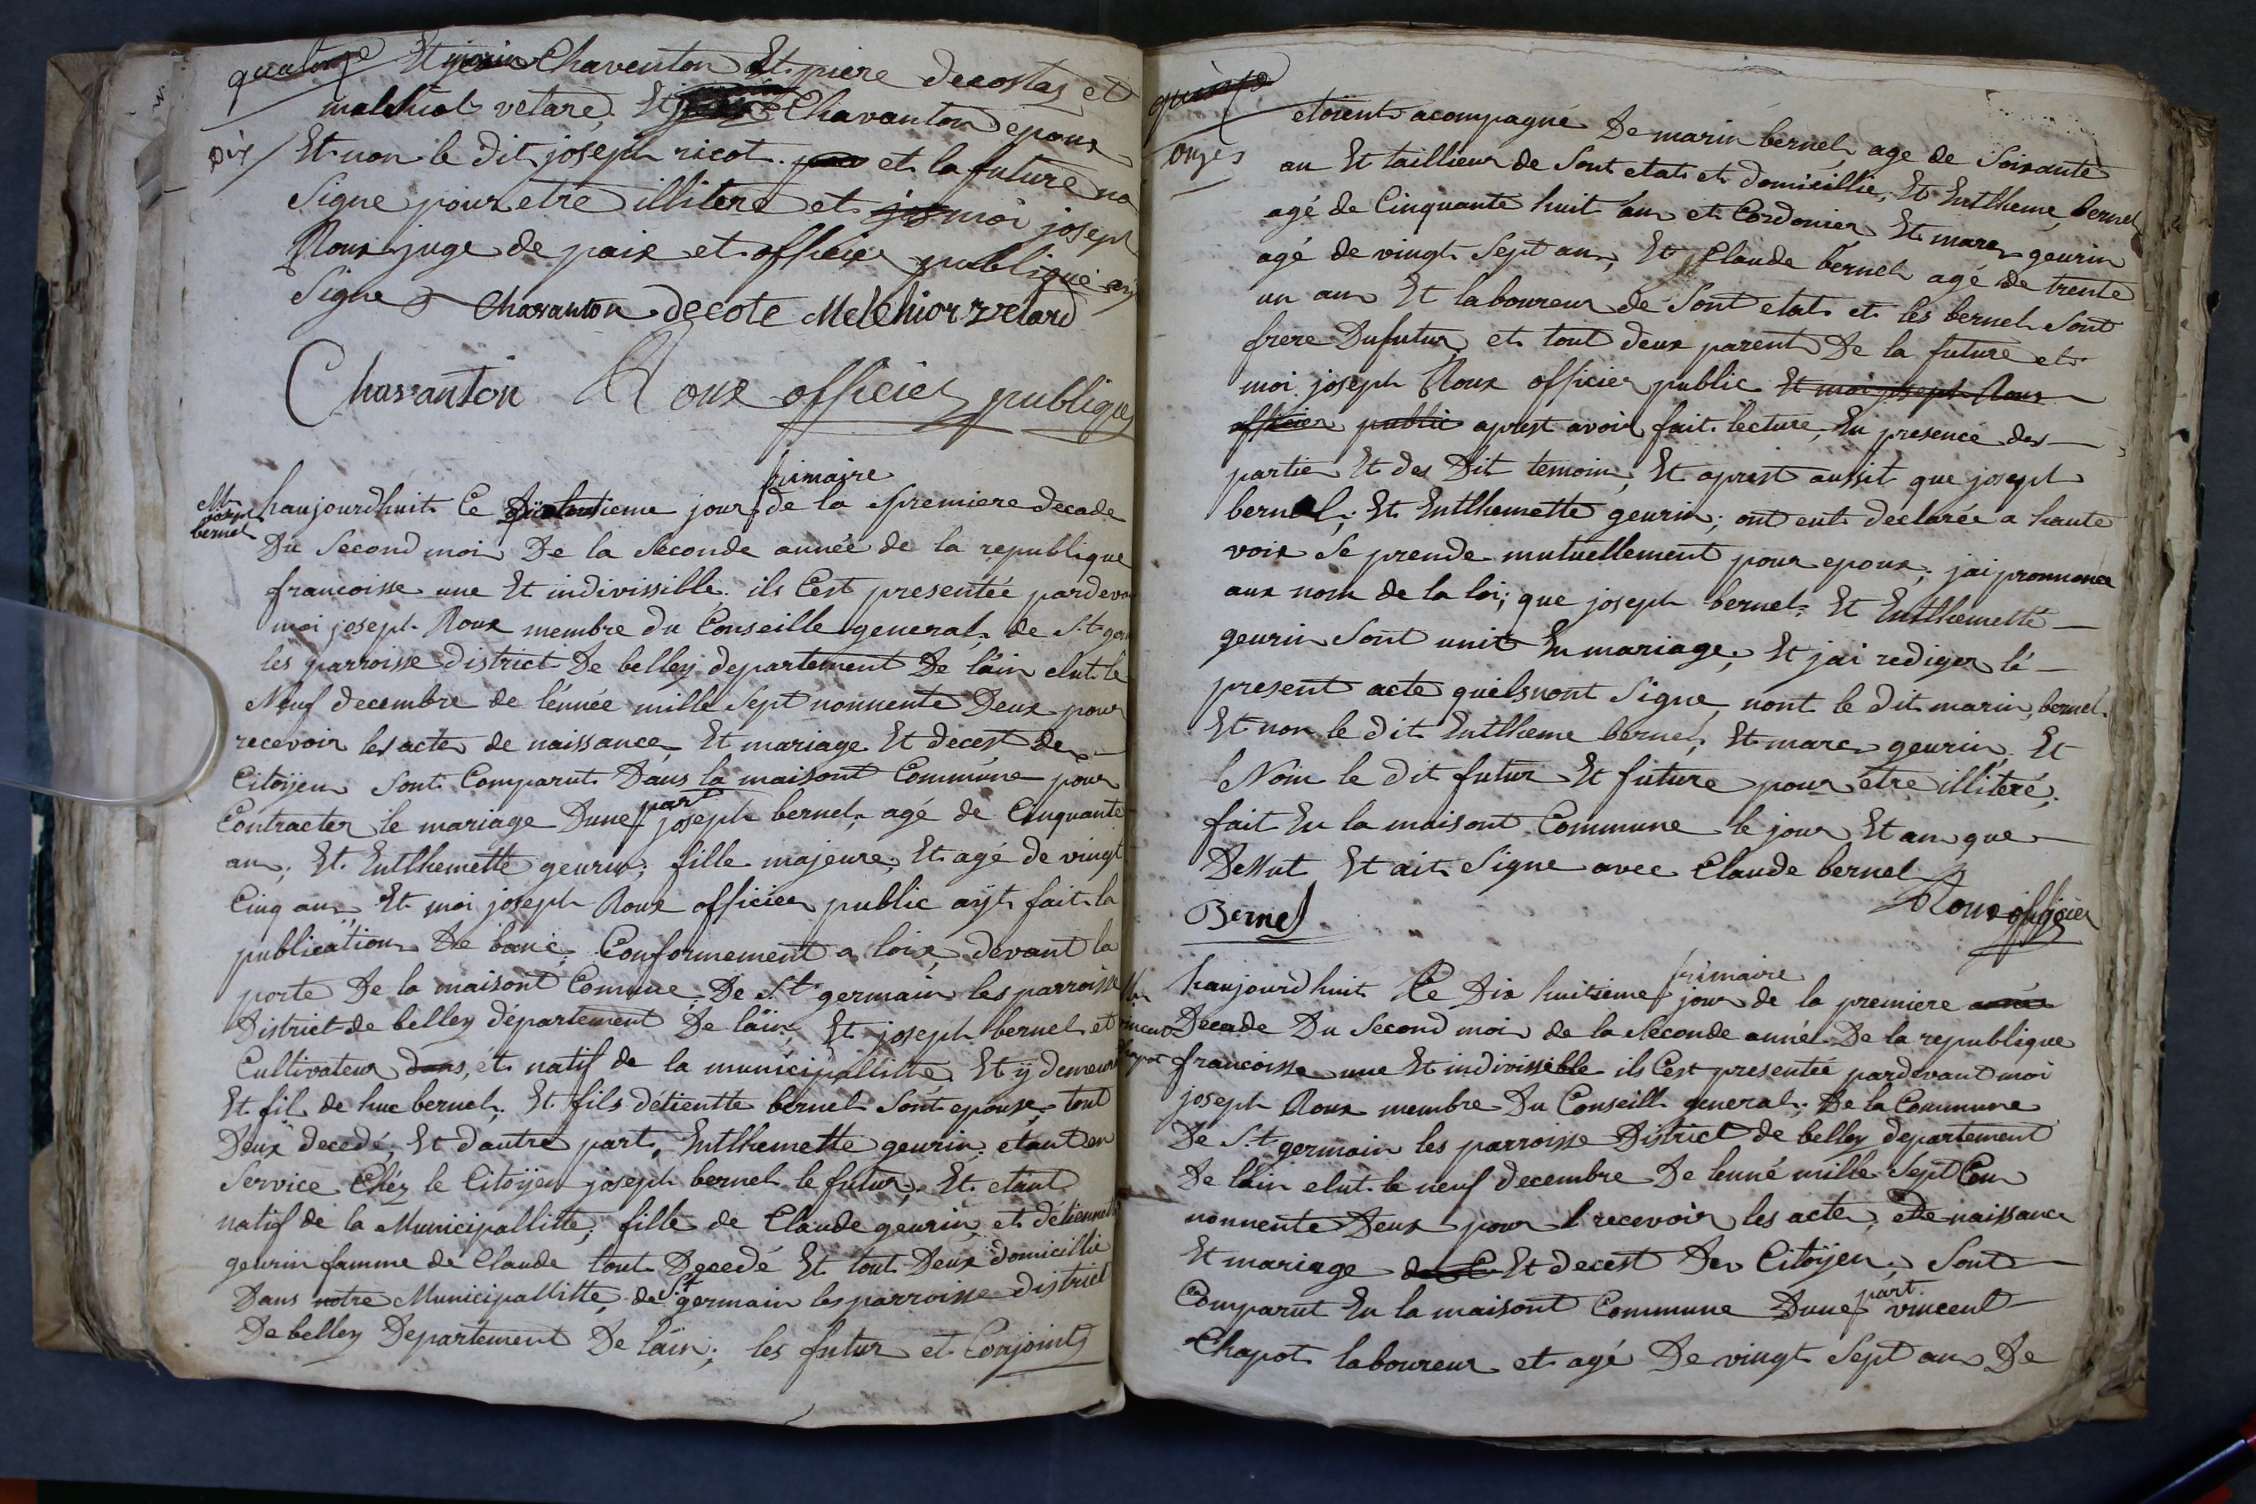 quatorze Et Chaventon Et piere decostas et
malchiol velare, Et Chavanton epoux
Dix Et non le dit joseph ricot. et la future no
Signe pour etre illitere et moi joseph
Roux juge de paix et officier publique
Signe Chavanton decote Melchior velard
Chavanton Roux officier publique
M joseph bernel
haujourdhuit Ce jour frimaire de la premiere decade
Du Second moi De la Seconde année de la republique
francoisse une Et indivissible. ils Cest presentée pardeva
moi joseph Roux membre du Conseille general, de St. ger
les parroisse district De belley departement De láin elut le
Neuf decembre de lénnée mille Sept nonnente Deux pour
recevoir les acte de naissance Et mariage Et decest de
Citoÿen Sont Comparut Dans la maisont Commune pour
Contracter le mariage Dune part joseph bernel, agé de Cinquante
an; Et Entlhemette geurin; fille majeure, Et agé de vingt
Cinq an; Et moi joseph Roux officier public aÿt fait la
publication De banc; Conformement a loix, devant la
porte De la maisont Comune De St germain les parroisse
District de belley département De láin, Et joseph bernel et
Cultivateur dans, et natif de la municipallitte Et ÿ demeuran
Et fil de huc bernel, Et fils détientte bernel Sont epouse, tout
Deux decedé, Et dautre part, Entlhemette geurin, etant en
Service Chéz le Citoÿen joseph bernel le futur, Et etant
natif de la Municipallitte, fille de Claude geurin et detiennette
geurin famme de Claude tout Decedé Et tout Deux domicillie
Dans notre Municipallitte, de St germain les parroisse district
De belley Departement De láin; les futur et Conjoint
quinze
onzes
etoient acompagné De marin bernel, age de Soixante
an Et taillieur de Sont etat et domicillie, Et Entlheme bernel
agé de Cinquante huit an et Cordonier Et marc geurin
agé de vingt Sept an, Et Claude bernel agé de trente
un an Et laboureur de Sont etat et les bernel Sont
frere Dufutur et tout deux parent De la future et
moi joseph Roux officier public Et moi joseph Roux
officier public aprest avoir fait lecture, En presence des
partie Et des Dit temoin, Et aprest aussit que joseph
bernel, Et Entlhemette geurin; ont eut declarée a haute
voix Se prende mutuellement pour epoux; jai pronnonce
aux nom de la loi; que joseph bernel Et Entlhemette
geurin Sont unit En mariage, Et jai rediger lé
present acte quils nont Signe, nont le Dit marin, bernel
Et non le dit Entlheme bernel, Et marc geurin, Et
Noin le dit futur Et future pour être illiteré,
fait En la maisont Commune le jour Et an que
Dessut Et ait Signe avec Claude bernel
Bernel Roux officier
vincent Chapot
haujourdhuit Ce Dix huitieme frimaire jour de la premiere année
Decade Du Second moi de la Seconde année De la republique
francoisse une Et indivissible ils Cest presentée pardevant moi
joseph Roux membre Du Conseill general, De la Commune
De St. germain les parroisse District de belley departement
De láin elut le neuf decembre De lenné mille Sept Cen
nonnente Deux pour recevoir les acte, De naissance
Et mariage Et decest Des Citoÿen, Sont
Comparut En la maisont Commune Dune part vincent
Chapot laboureur et agé De vingt Sept an De